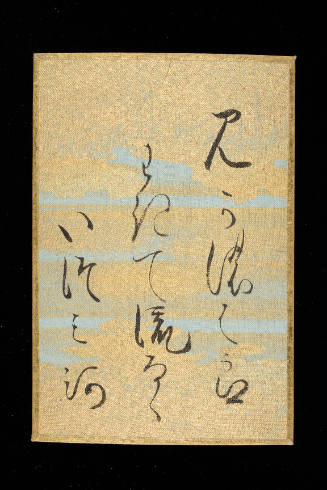 みかのはら
わきて流るゝ
いつみ河